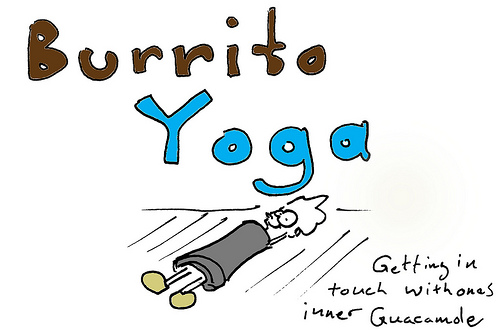 Burrito
Yoga
Getting in
touch with ones
inner Guacamole